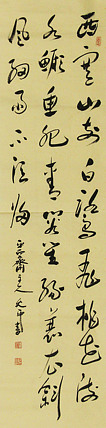 西塞山前白鷺飛桃花流
水鱖魚肥青箬笠綠蓑衣斜
風細雨不須歸
齋主人